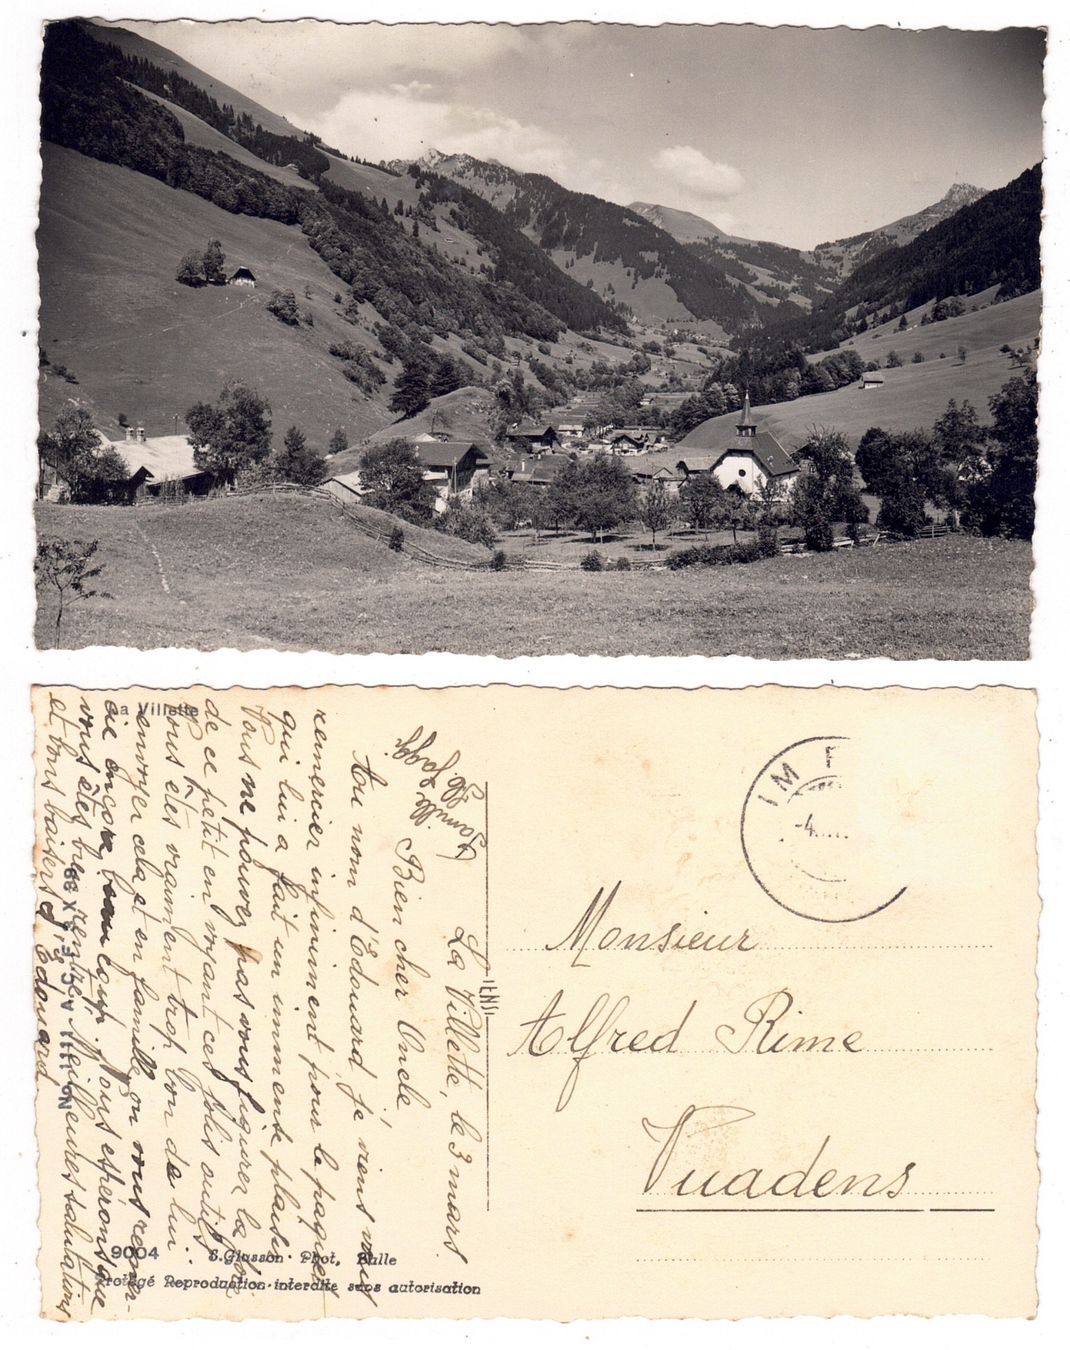 La Villette
La Villette, le 3 mars
Bien cher Oncle
Au nom d'Edouard je viens vous
remercier infiniment pour le
qui lui a fait un immense plaisir
Vous ne pouvez pas vous figurer la joie
de ce petit en voyant ces jolis outils
vous êtes vraiment trop bon de lui
envoyer cela et en famille on vous remer-
cie encore beaucoup. Nous espérons que
vous êtes bien rentré. Meilleures salutations
et bons baisers d'Edouard.
Famille
Jaggi
No 1111 A C E
9004 S. Glasson Phot. Bulle
Protégé Reproduction interdite sans autorisation
IENS
IM
-4
Monsieur
Alfred Rime
Vuadens